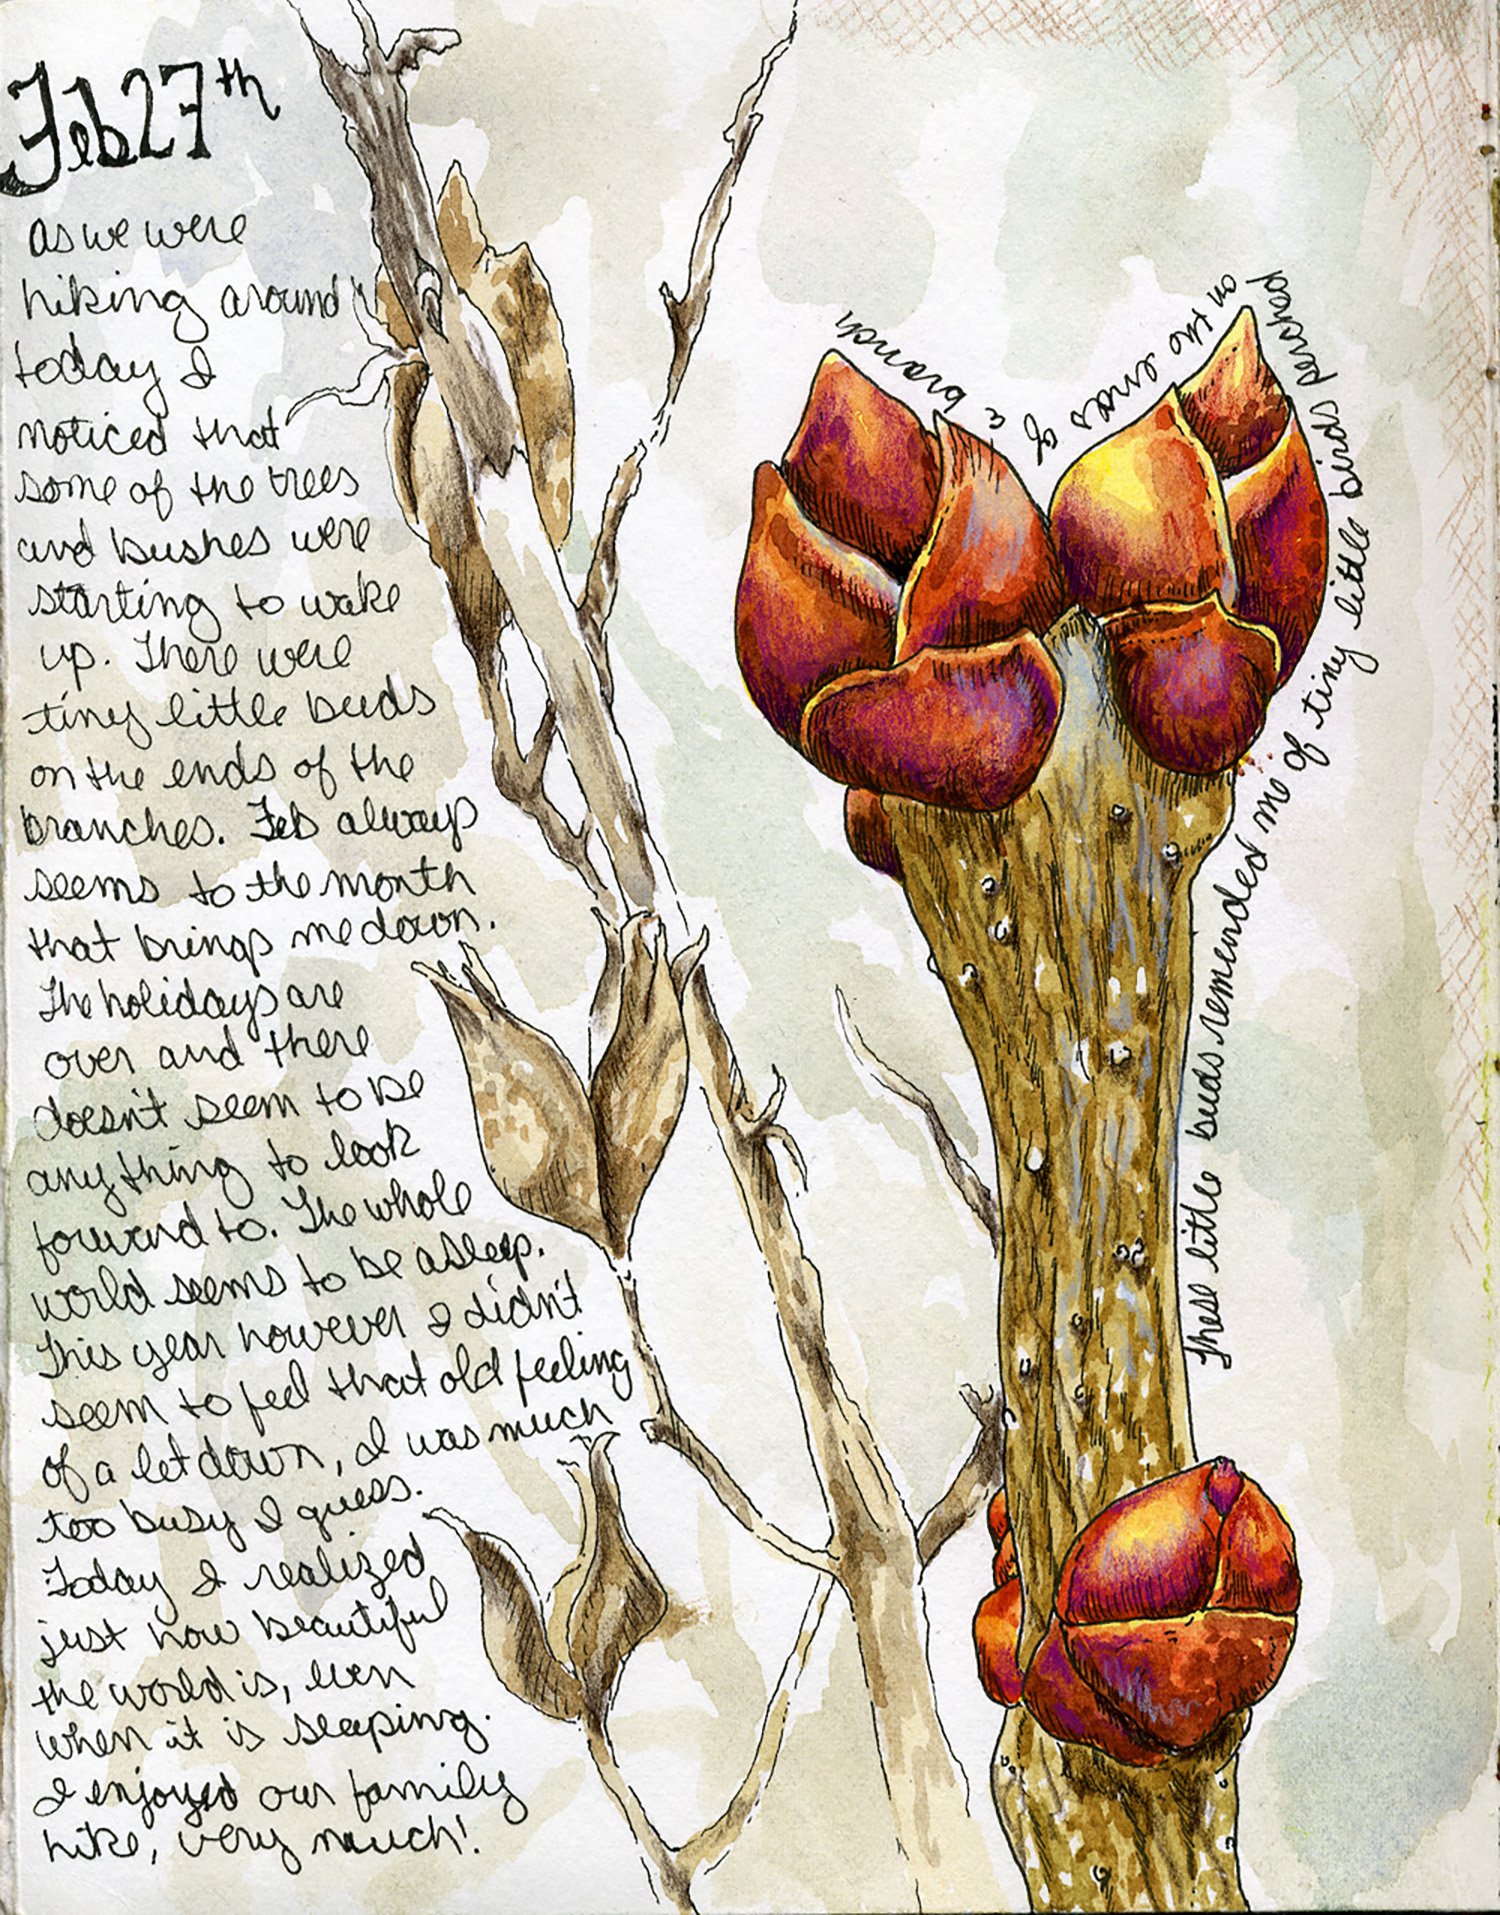 Feb 27th
as we were
hiking around
today I
noticed that
some of the trees
and bushes were
starting to wake
up. There were
tiny little buds
on the ends of the
branches. Feb always
seems to the month
that brings me down.
The holidays are
over and there
doesn't seem to be
anything to look
forward to. The whole
world seems to be asleep.
This year however I didn't
seem to feel that old feeling
of a let down, I was much
too busy I guess.
Today I realized
just how beautiful
the world is, even
when it is sleeping.
I enjoyed our family
hike, very much!
These little buds reminded me of tiny little birds perched
on the ends of a branch